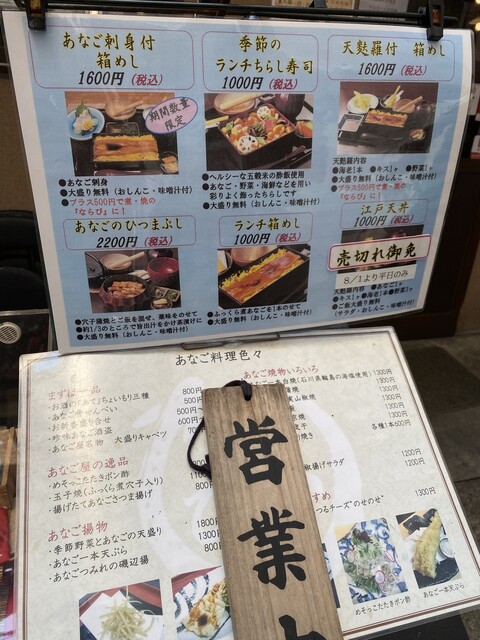 あなご刺身付
箱めし
1600円(税込)
期間数量
限定
●あなご刺身
●大盛り無料(おしんこ・味噌汁付)
●プラス500円で煮・焼の
「ならび」に!
季節の
ランチちらし寿司
1000円(税込)
●ヘルシーな五穀米の酢飯使用
●あなご・野菜・海鮮などを用い
彩りよく飾ったちらしです
●大盛り無料(おしんこ・味噌汁付)
天麩羅付 箱めし
1600円(税込)
天麩羅内容
●海老1本 ●キス1ヶ ●野菜1ヶ
●大盛り無料(おしんこ・味噌汁付)
●プラス500円で煮・焼の
「ならび」に!
あなごのひつまぶし
2200円(税込)
●穴子蒲焼とご飯を混ぜ、薬味をのせて
●約1/3のところで旨出汁をかけ茶漬けに
●大盛り無料(おしんこ・味噌汁付)
ランチ箱めし
1000円(税込)
●ふっくら煮あなごを1本のせて
●大盛り無料(おしんこ・味噌汁付)
江戸天丼
1000円(税込)
売切れ御免
8/1より平日のみ
天麩羅内容 ●あなご1ヶ
●キス1ヶ ●海老1本●野菜1ヶ
●ご飯大盛り無料
(サラダ・おしんこ・味噌汁付)
あなご料理色々
まずは一品
・お酒の「あて」ちょいもり三種 800円
・あなご骨せんべい 500円
・お新香盛り合せ 500円
・珍味あなご酒盗 600円
・あなご屋名物 大盛りキャベツ
あなご屋の逸品
・めそっこたたきポン酢
・玉子焼(ふっくら煮穴子入り)
・揚げたてあなごさつま揚げ
あなご揚物
・季節野菜とあなごの天盛り 1800円
・あなご一本天ぷら 1300円
・あなごつみれの磯辺揚 800円
あなご焼物いろいろ
白焼(石川県輪島の海塩使用) 1300円
1300円
1300円
1300円
1300円
各種1本600円
1200円
1200円
1300円
営業
めそっこたたきポン酢
あなご一本天ぷら